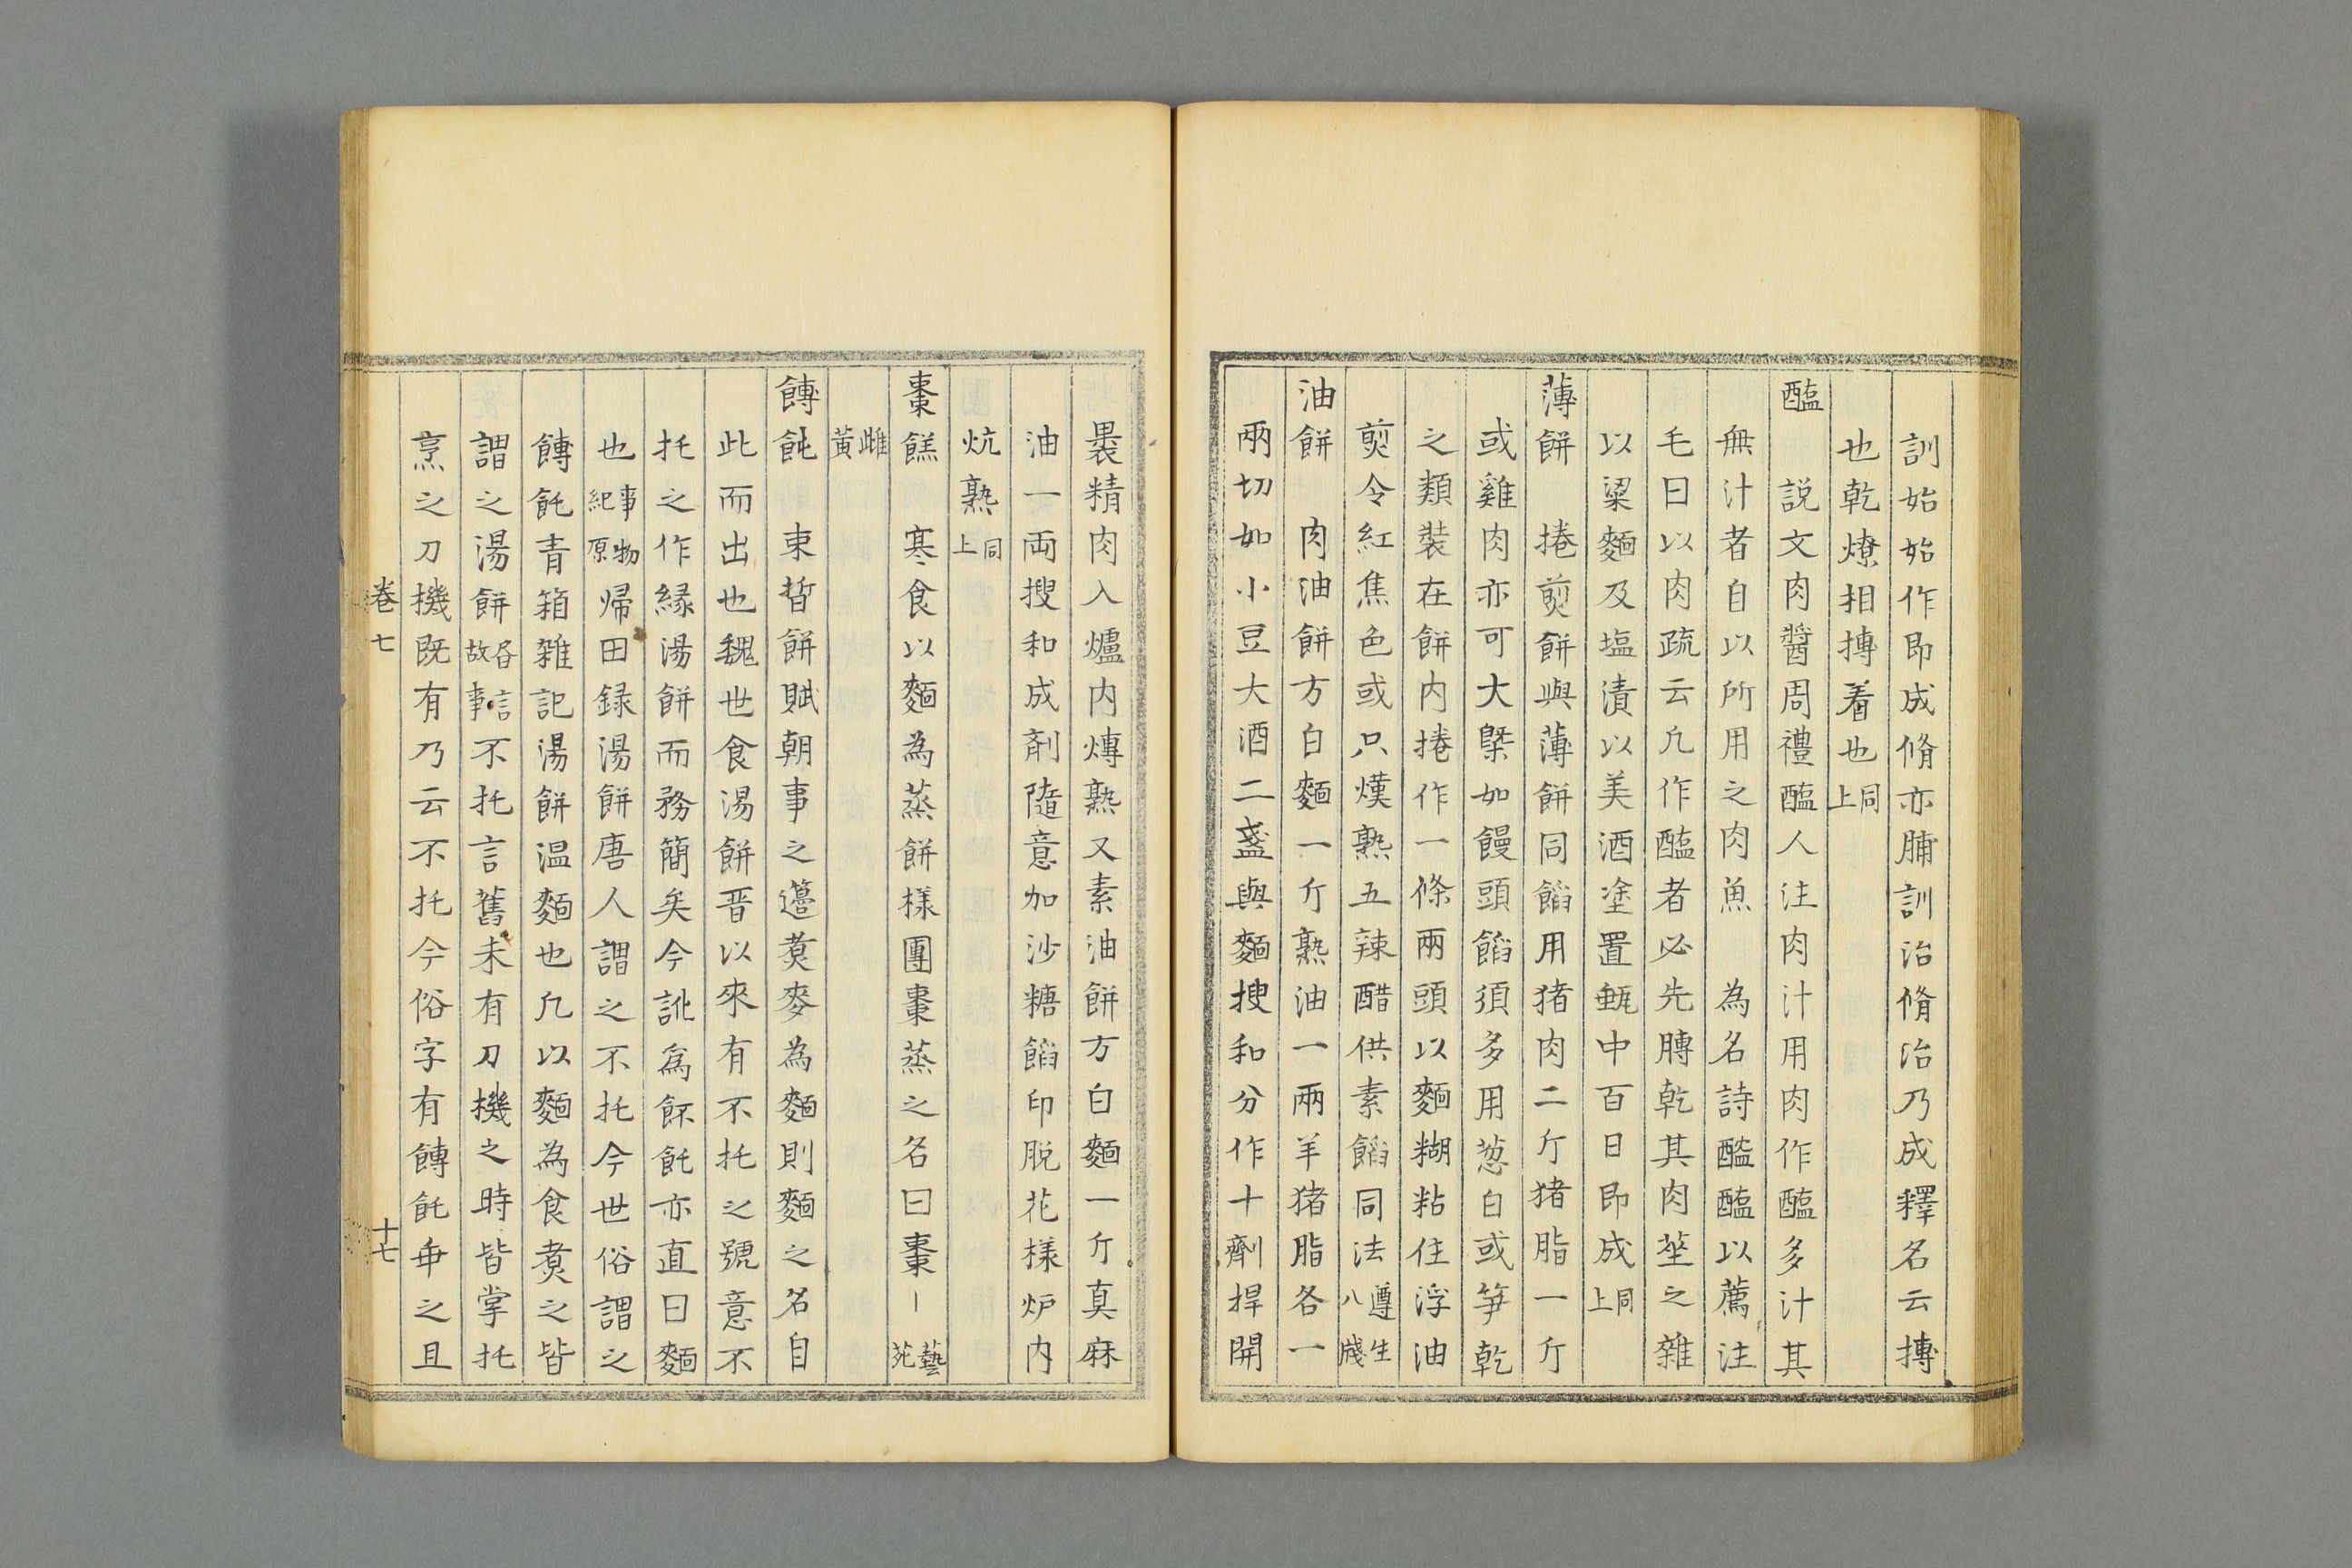 訓始始作即成脩亦脯訓治脩治乃成釋名云搏
也乾燎相搏着也同上
醢　説文肉醬周禮醢人注肉汁用肉作醢多汁其
無汁者自以所用之肉魚　為名詩醓醢以薦注
毛曰以肉疏云凡作醢者必先膊乾其肉莝之雜
以粱麴及塩漬以美酒塗置甀中百日即成同上
薄餅　捲煎餅與薄餅同餡用猪肉二斤猪脂一斤
或雞肉亦可大槩如饅頭餡須多用葱白或笋乾
之類裝在餅內捲作一條兩頭以麵糊粘住浮油
煎令紅焦色或只熯熟五辣醋供素餡同法遵生八牋
油餅　肉油餅方白麵一斤熟油一兩羊猪脂各一
兩切如小豆大酒二盞與麵搜和分作十劑捍開
褁精肉入爐内煿熟又素油餅方白麵一斤真麻
油一両搜和成剤隨意加沙糖餡印脱花様炉内
炕熟同上
棗餻　寒食以麵為蒸餅様團棗蒸之名曰棗｜藝苑
雌黃
餺飥　束晳餅賦朝事之籩煑麥為麵則麵之名自
此而出也魏世食湯餅晋以來有不托之號意不
托之作緣湯餅而務簡矣今訛為飥亦直曰麵
也事物紀原帰田録湯餅唐人謂之不托今世俗謂之
餺飥青箱雑記湯餅温麵也凡以麵為食煑之皆
謂之湯餅言故事不托言舊未有刀機之時皆掌托
烹之刀機既有乃云不托今俗字有餺飥之且
卷七
十七